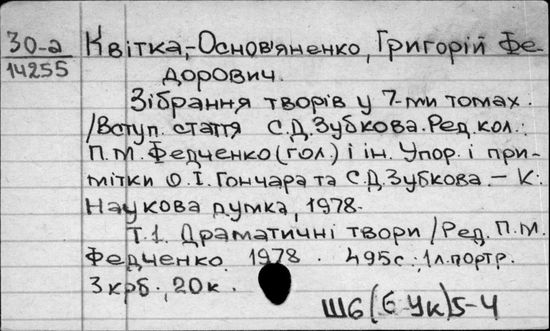 30-а
14255
Квітка,-Основ'яненко, Григорій Фе-
дорович.
Зібрання творів у 7-ми томах.
/Вступ. стаття С.Д.Зубкова. Ред.кол.:
П.М. Федченко (гол.) і ін. Упор. і при-
мітки О.І. Гончара та С.Д.Зубкова. – К:
Наукова думка, 1978.
Т.1. Драматичні твори / Ред. П.М.
Федченко 1978. 495с.; 1л.портр.
3 крб., 20к.
Ш6(6Ук)5-4